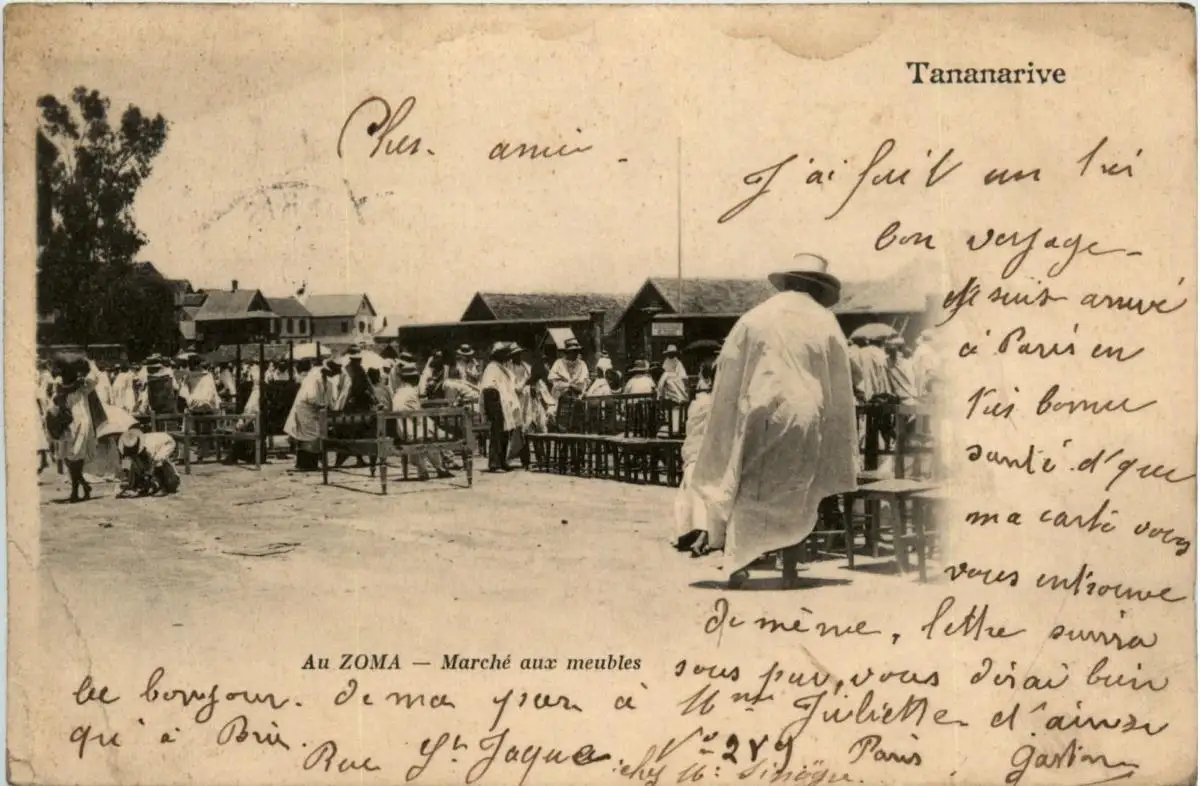 Tananarive
Cher ami
J'ai fait un très
bon voyage
Je suis arrivé
à Paris en
très bonne
santé. d'que
ma carte vous
vous entrouve
de même, lettre suivra
sous peu, vous dirai bien
Au ZOMA — Marché aux meubles
le bonjour. de ma par à Mme Juliette d'ainsi
qu'à Brie.
Rue St Jaques No 289 Paris Gaston
chez Mr